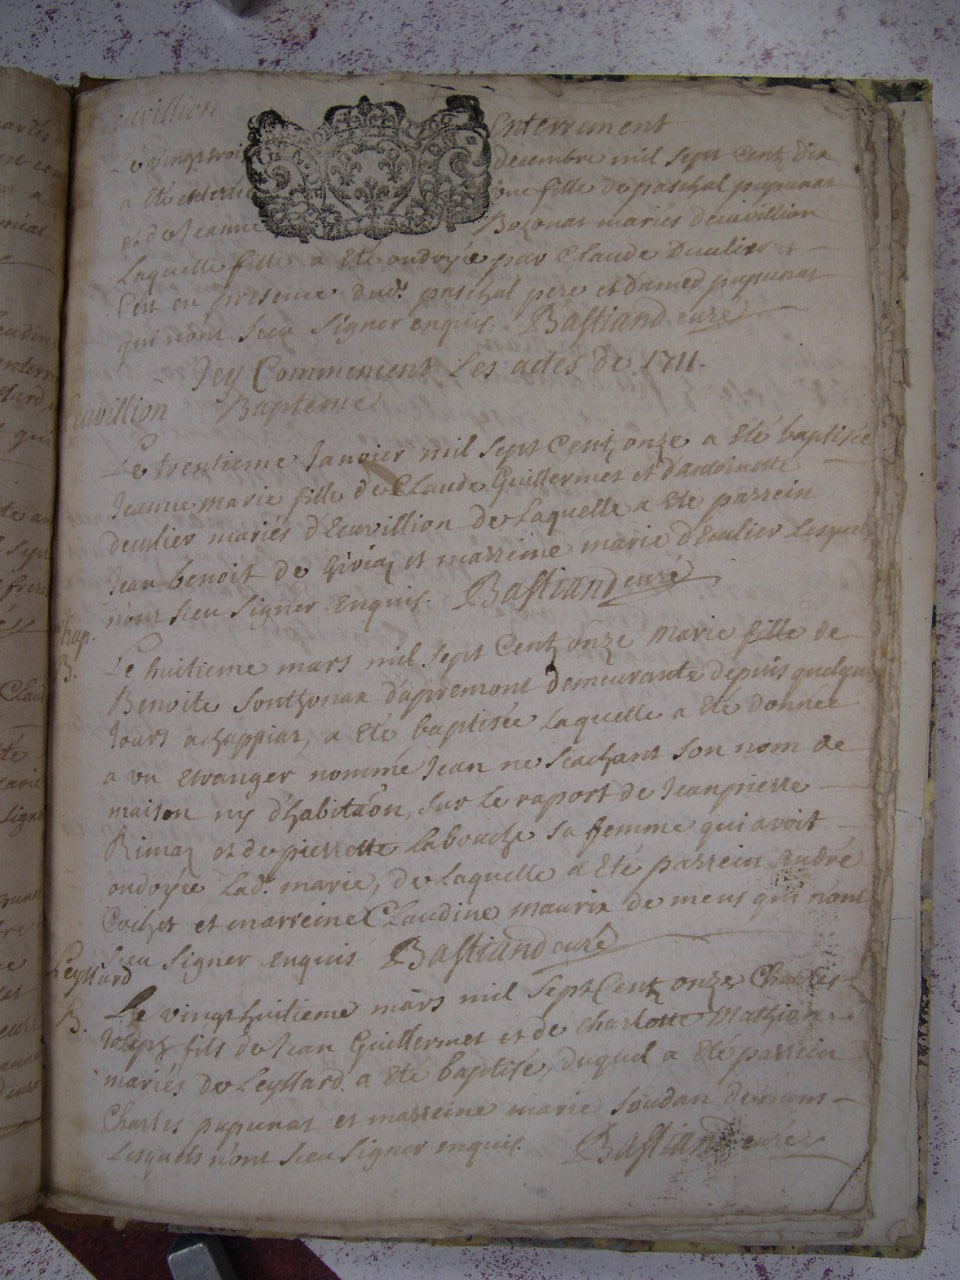 Euvillion Enterrement
Le vingt trois decembre mil sept Cent dix
a eté enterrée une fille de paschal pupunat
et de Jeanne Bozonat mariés deuvillion
Laquelle fille a Eté ondoyée par Claude Deulier et
C'est en presence dud. paschal pere et Damed pupunat
qui n'ont sceu signer enquis. Bastiand curé
Jcy Commencent Les actes de 1711.
Euvillion Baptême
Le trentieme Janvier mil sept Cent onze a Eté baptisée
Jeanne marie fille de Claude Guillermet et d'antoinette
deulier mariés d'Euvillion de Laquelle a Eté parrein
Jean benoit de Giriaz et marreine marie d'Eulier Lesquels
n'ont sceu signer Enquis. Bastiand curé
Chap.
B. Le huitieme mars mil sept Cent onze marie fille de
Benoite Sonthonax d'apremont demeurante depuis quelques
Jours a chappiat, a Eté baptisée Laquelle a Eté donnée
a un Etranger nommé Jean ne scachant son nom de
maison ny d'habitaon, sur Le raport de Jeanpierre
Rimaz et de pierrotte Labouche sa femme qui avoit
ondoyée Lad. marie, de Laquelle a Eté parrein André
Cochet et marreine Claudine maurix de meus qui n'ont
sceu signer Enquis Bastiand curé
Leyssard
B. Le vingt huitieme mars mil sept Cent onze Charles
Joseph fils de Jean Guillermet et de Charlotte Mathian
mariés de Leyssard a eté baptisé, duquel a Eté parrein
Charles pupunat et marreine marie soudan de mens
Lesquels n'ont sceu signer enquis. Bastiand curé